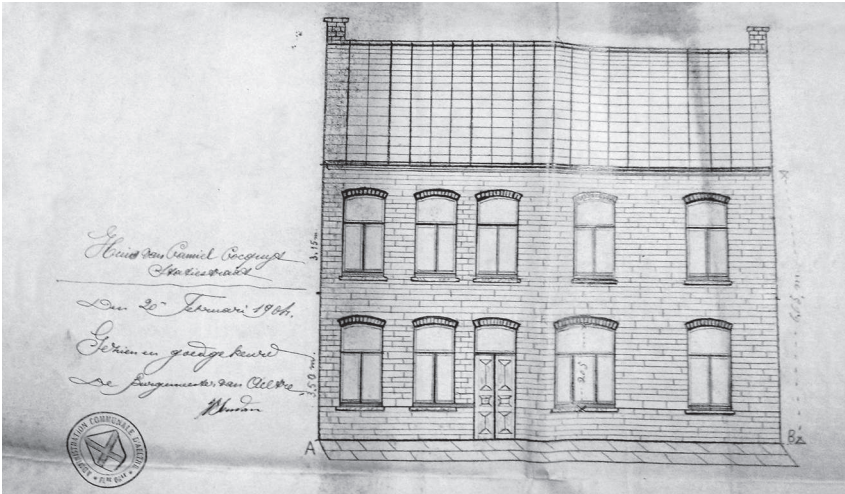 Huis van Camiel Cocquyt
Statiestraat
Den 20 Februari 1904.
Gezien en goedgekeurd
De Burgemeester van Aeltre
ADMINISTRATION COMMUNALE D'AELTRE
3,15 m.
3,50 m.
2,5
A
B